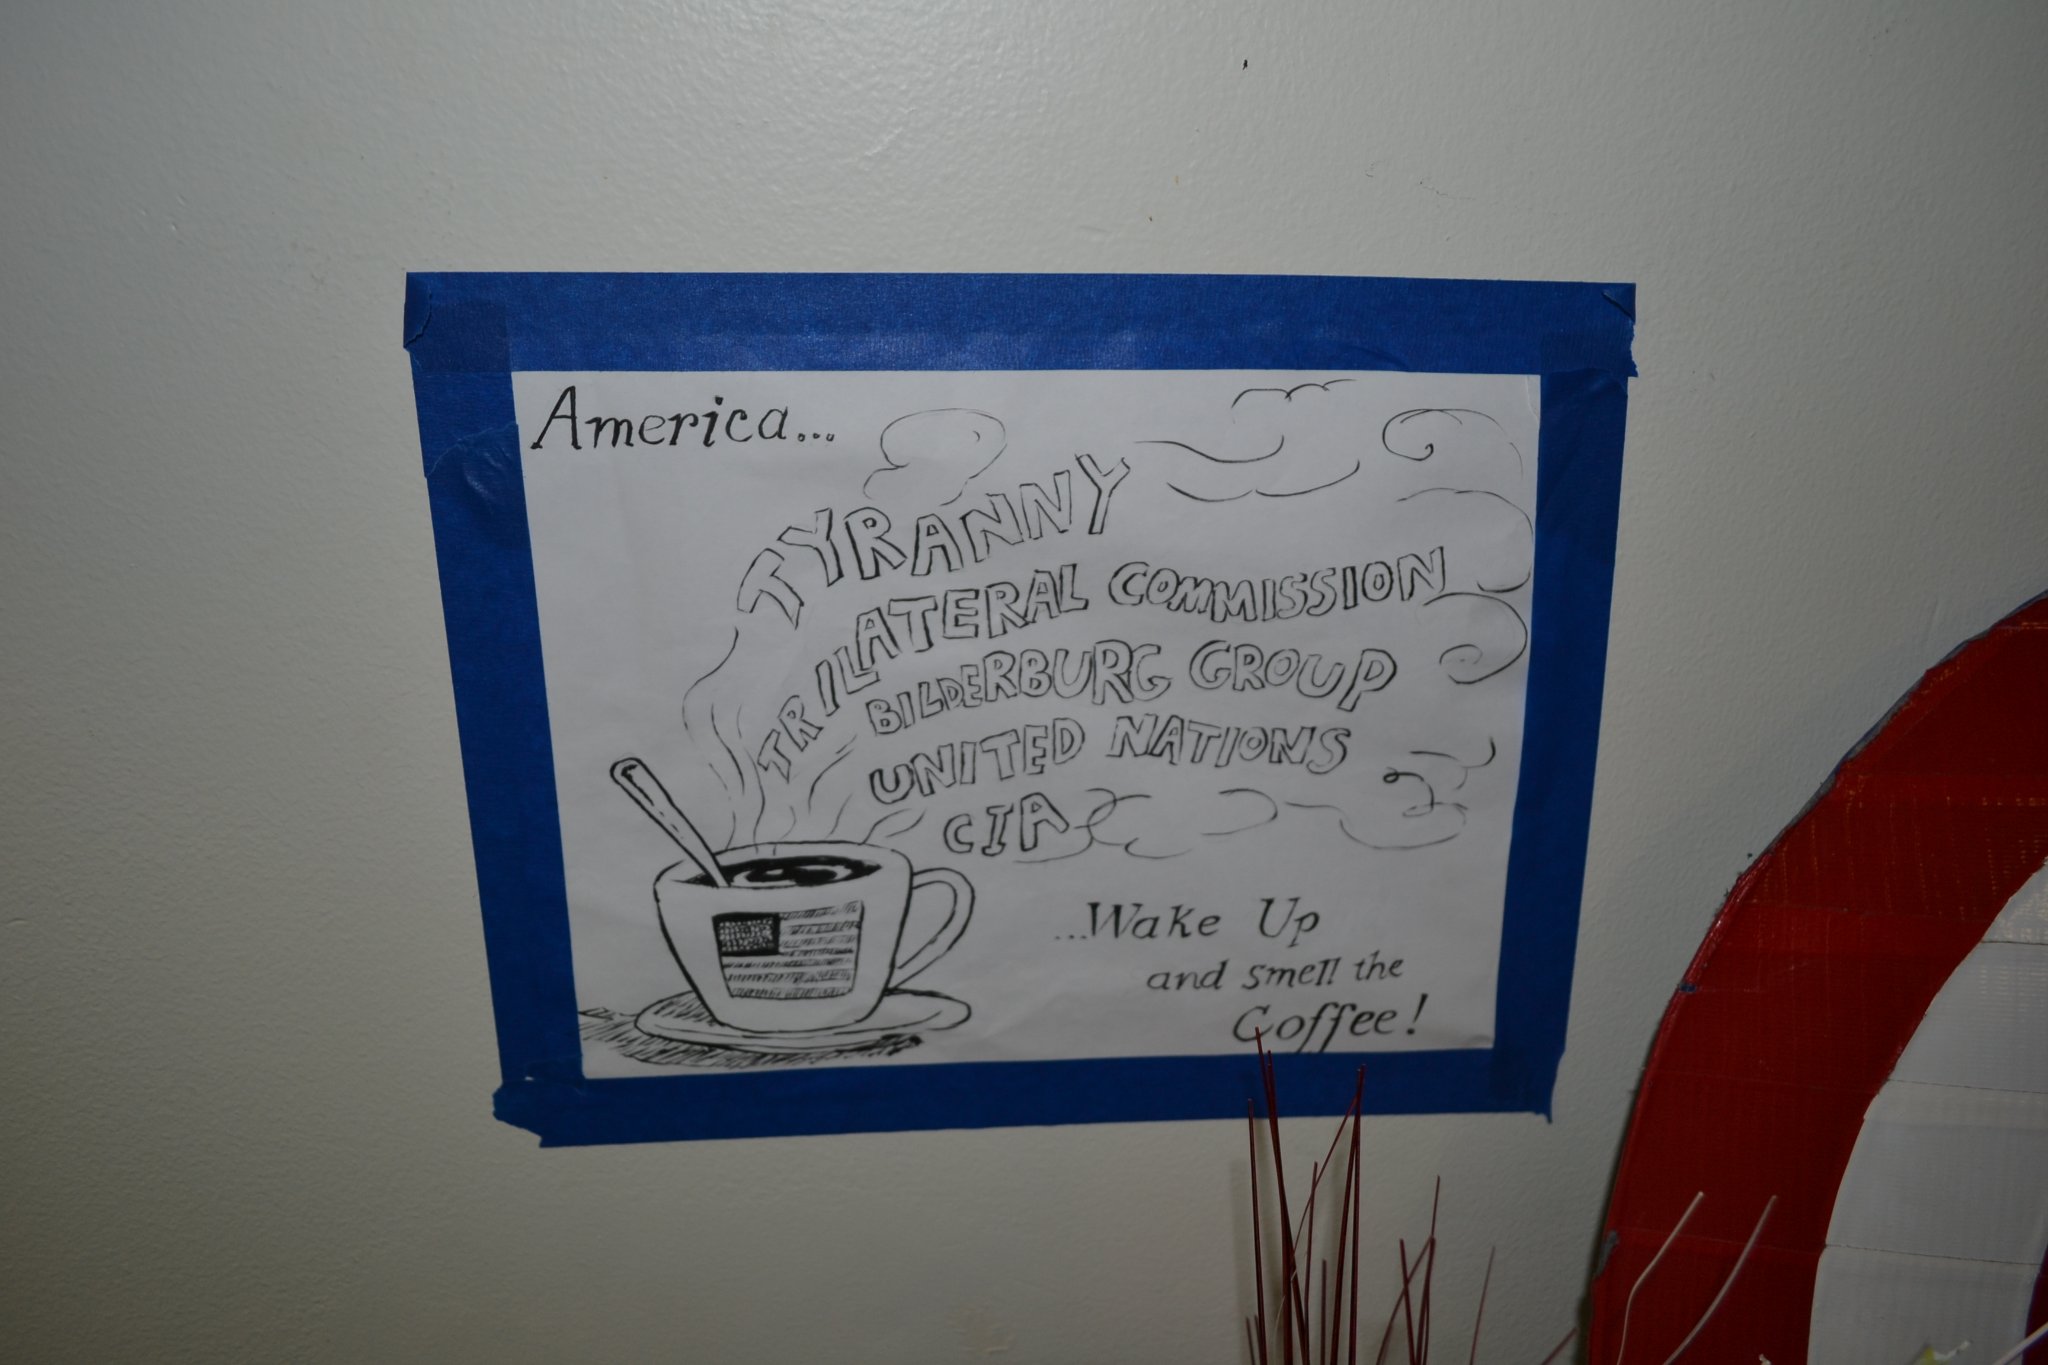 America...
TYRANNY
TRILLATERAL COMMISSION
BILDERBURG GROUP
UNITED NATIONS
CIA
...Wake Up
and smell the
Coffee!